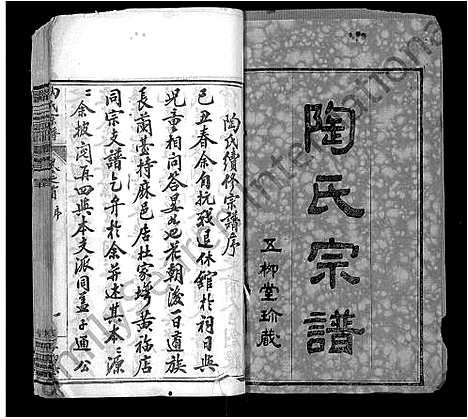 陶氏宗譜
五柳堂珍藏
陶氏續修宗譜序
己丑春余自抗殘退休館於祠日與
此童相問答異地花朝後一日適族
長蘭臺持麻邑店杜家塆黃福店
同宗支譜乞弁於余并述其本源
余披閱再四與本支派同蓋子通公